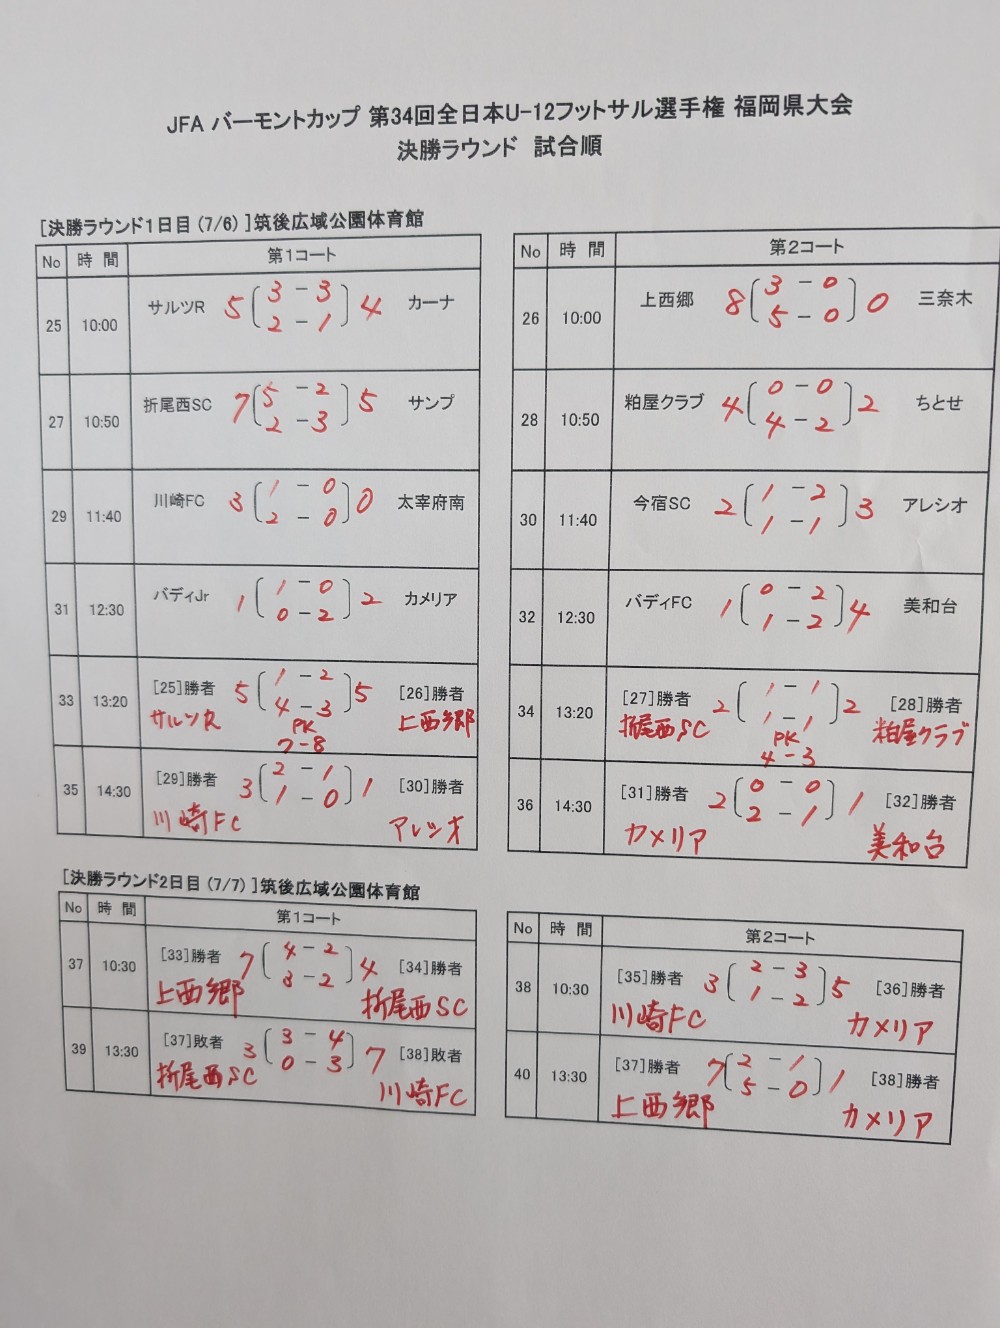 JFA バーモントカップ 第34回全日本U-12フットサル選手権 福岡県大会
決勝ラウンド 試合順
[決勝ラウンド1日目 (7/6) ]筑後広域公園体育館
No 時間 第1コート
25 10:00 サルツR 5 (3 - 3 4 カーナ
2 - 1)
27 10:50 折尾西SC 7 (5 - 2 5 サンプ
2 - 3)
29 11:40 川崎FC 3 (1 - 0 0 太宰府南
2 - 0)
31 12:30 バディJr 1 (1 - 0 2 カメリア
0 - 2)
33 13:20 [25]勝者 5 (1 - 2 5 [26]勝者
サルツR 4 - 3) 上西郷
PK
7-8
35 14:30 [29]勝者 3 (2 - 1 1 [30]勝者
川崎FC 1 - 0) アレシオ
No 時間 第2コート
26 10:00 上西郷 8 (3 - 0 0 三奈木
5 - 0)
28 10:50 粕屋クラブ 4 (0 - 0 2 ちとせ
4 - 2)
30 11:40 今宿SC 2 (1 - 2 3 アレシオ
1 - 1)
32 12:30 バディFC 1 (0 - 2 4 美和台
1 - 2)
34 13:20 [27]勝者 2 (1 - 1 2 [28]勝者
折尾西SC 1 - 1) 粕屋クラブ
PK
4-3
36 14:30 [31]勝者 2 (0 - 0 1 [32]勝者
カメリア 2 - 1) 美和台
[決勝ラウンド2日目 (7/7) ]筑後広域公園体育館
No 時間 第1コート
37 10:30 [33]勝者 7 (4 - 2 4 [34]勝者
上西郷 3 - 2) 折尾西SC
39 13:30 [37]敗者 3 (3 - 4 7 [38]敗者
折尾西SC 0 - 3) 川崎FC
No 時間 第2コート
38 10:30 [35]勝者 3 (2 - 3 5 [36]勝者
川崎FC 1 - 2) カメリア
40 13:30 [37]勝者 7 (2 - 1 1 [38]勝者
上西郷 5 - 0) カメリア